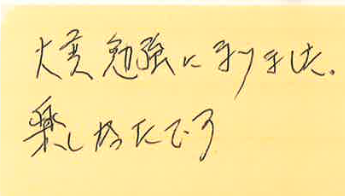 大変勉強になりました。
楽しかったです